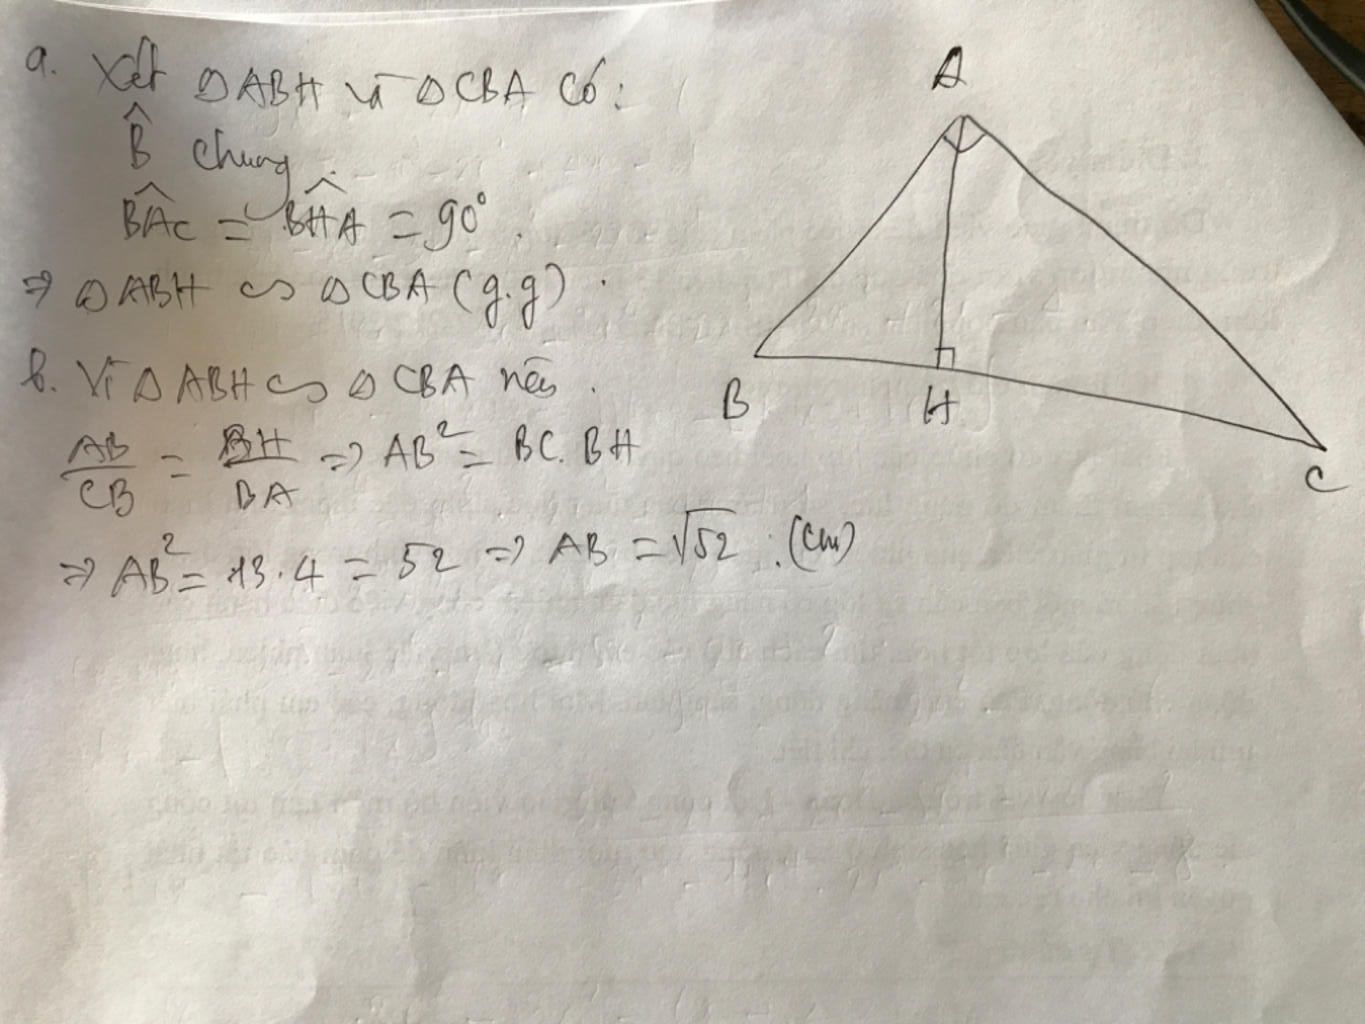 a. Xét △ABH và △CBA có:
B̂ chung
BAC^ = BHA^ = 90°.
⇒ △ABH ∽ △CBA (g.g).
b. Vì △ABH ∽ △CBA nên.
AB/CB = BH/BA ⇒ AB² = BC.BH
⇒ AB² = 13.4 = 52 ⇒ AB = √52. (cm)
A
B
H
C